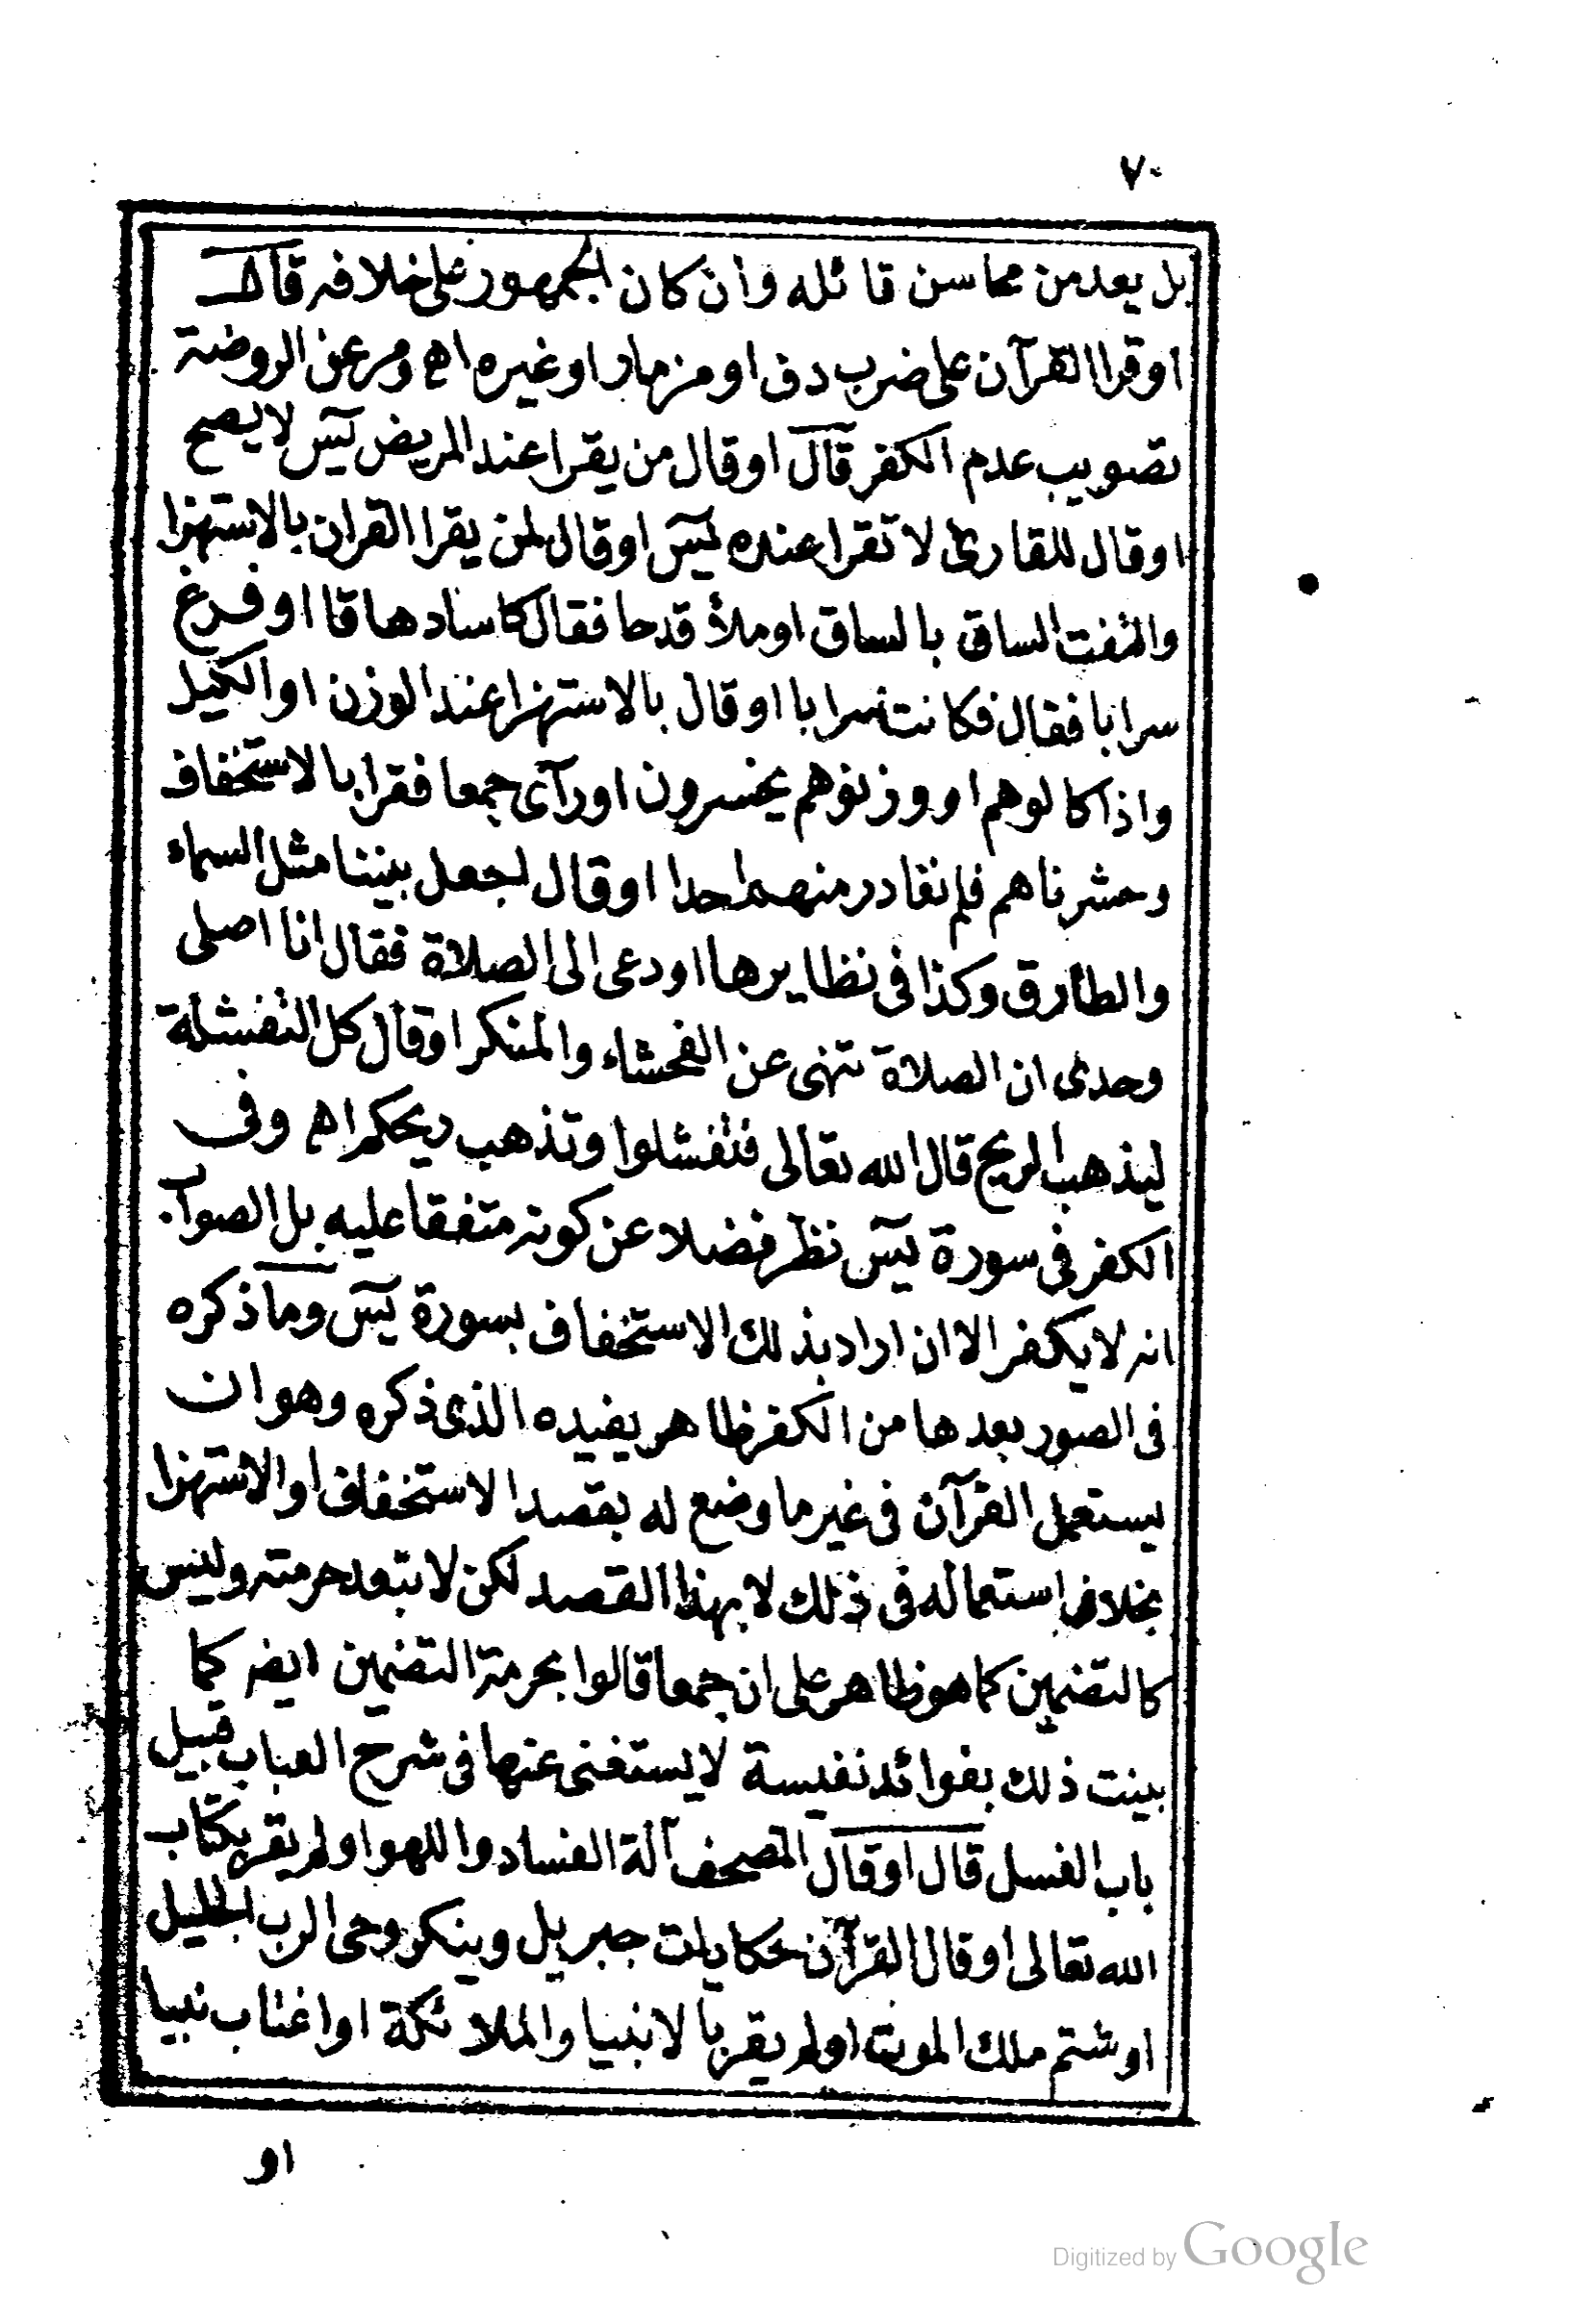 ٧٠
بل يعد من محاسن قائله وان كان الجمهور على خلافه قال
او قرا القرآن على ضرب دف او مزمار او غيره اه ومر عن الروضة
تصويب عدم الكفر قال او قال من يقرا عند المريض يس لا يصح
او قال للقارئ لا تقرا عنده يس او قال لمن يقرا القران بالاستهزا
والتفت الساق بالساق او ملأ قدحا فقال كاسا دهاقا او فرغ
سرابا فقال فكانت سرابا او قال بالاستهزا عند الوزن او الكيل
واذا كالوهم او وزنوهم يخسرون او رآى جمعا فقرا بالاستخفاف
وحشرناهم فلم نغادر منهم احدا او قال اجعل بيننا مثل السماء
والطارق وكذا فى نظايرها او دعى الى الصلاة فقال انا اصلى
وحدى ان الصلاة تنهى عن الفحشاء والمنكر او قال كل التفشلة
ليذهب الريح قال الله تعالى فتفشلوا وتذهب ريحكم اه وفى
الكفر فى سورة يس نظر فضلا عن كونه متفقا عليه بل الصواب
انه لا يكفر الا ان اراد بذلك الاستخفاف بسورة يس وما ذكره
فى الصور بعدها من الكفر ظاهر يفيده الذى ذكره وهو ان
يستعمل القرآن فى غير ما وضع له بقصد الاستخفاف او الاستهزا
بخلاف استعماله فى ذلك لا بهذا القصد لكن لا تبعد حرمته وليس
كالتضمين كما هو ظاهر على ان جمعا قالوا بحرمة التضمين ايضه كما
بينت ذلك بفوائد نفيسة لا يستغنى عنها فى شرح العباب قبيل
باب الغسل قال او قال المصحف آلة الفساد واللهو او لم يقر بكتاب
الله تعالى او قال القرآن حكايات جبريل وينكر وحى الرب الجليل
او شتم ملك الموت او لم يقر بالانبيا والملائكة او اغتاب نبيا
او
Digitized by Google